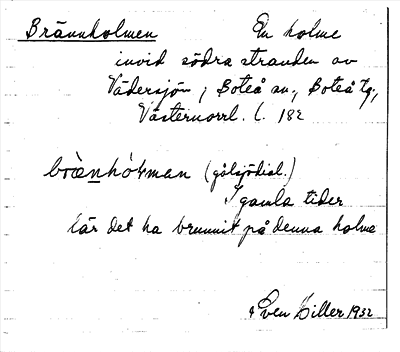 Brännholmen En holme
invid södra stranden av
Vädersjön, Boteå sn, Boteå tg,
Västernorrl. l. 182
(gålsjödial.)
I gamla tider
lär det ha brunnit på denna holme
Sven Hiller 1932